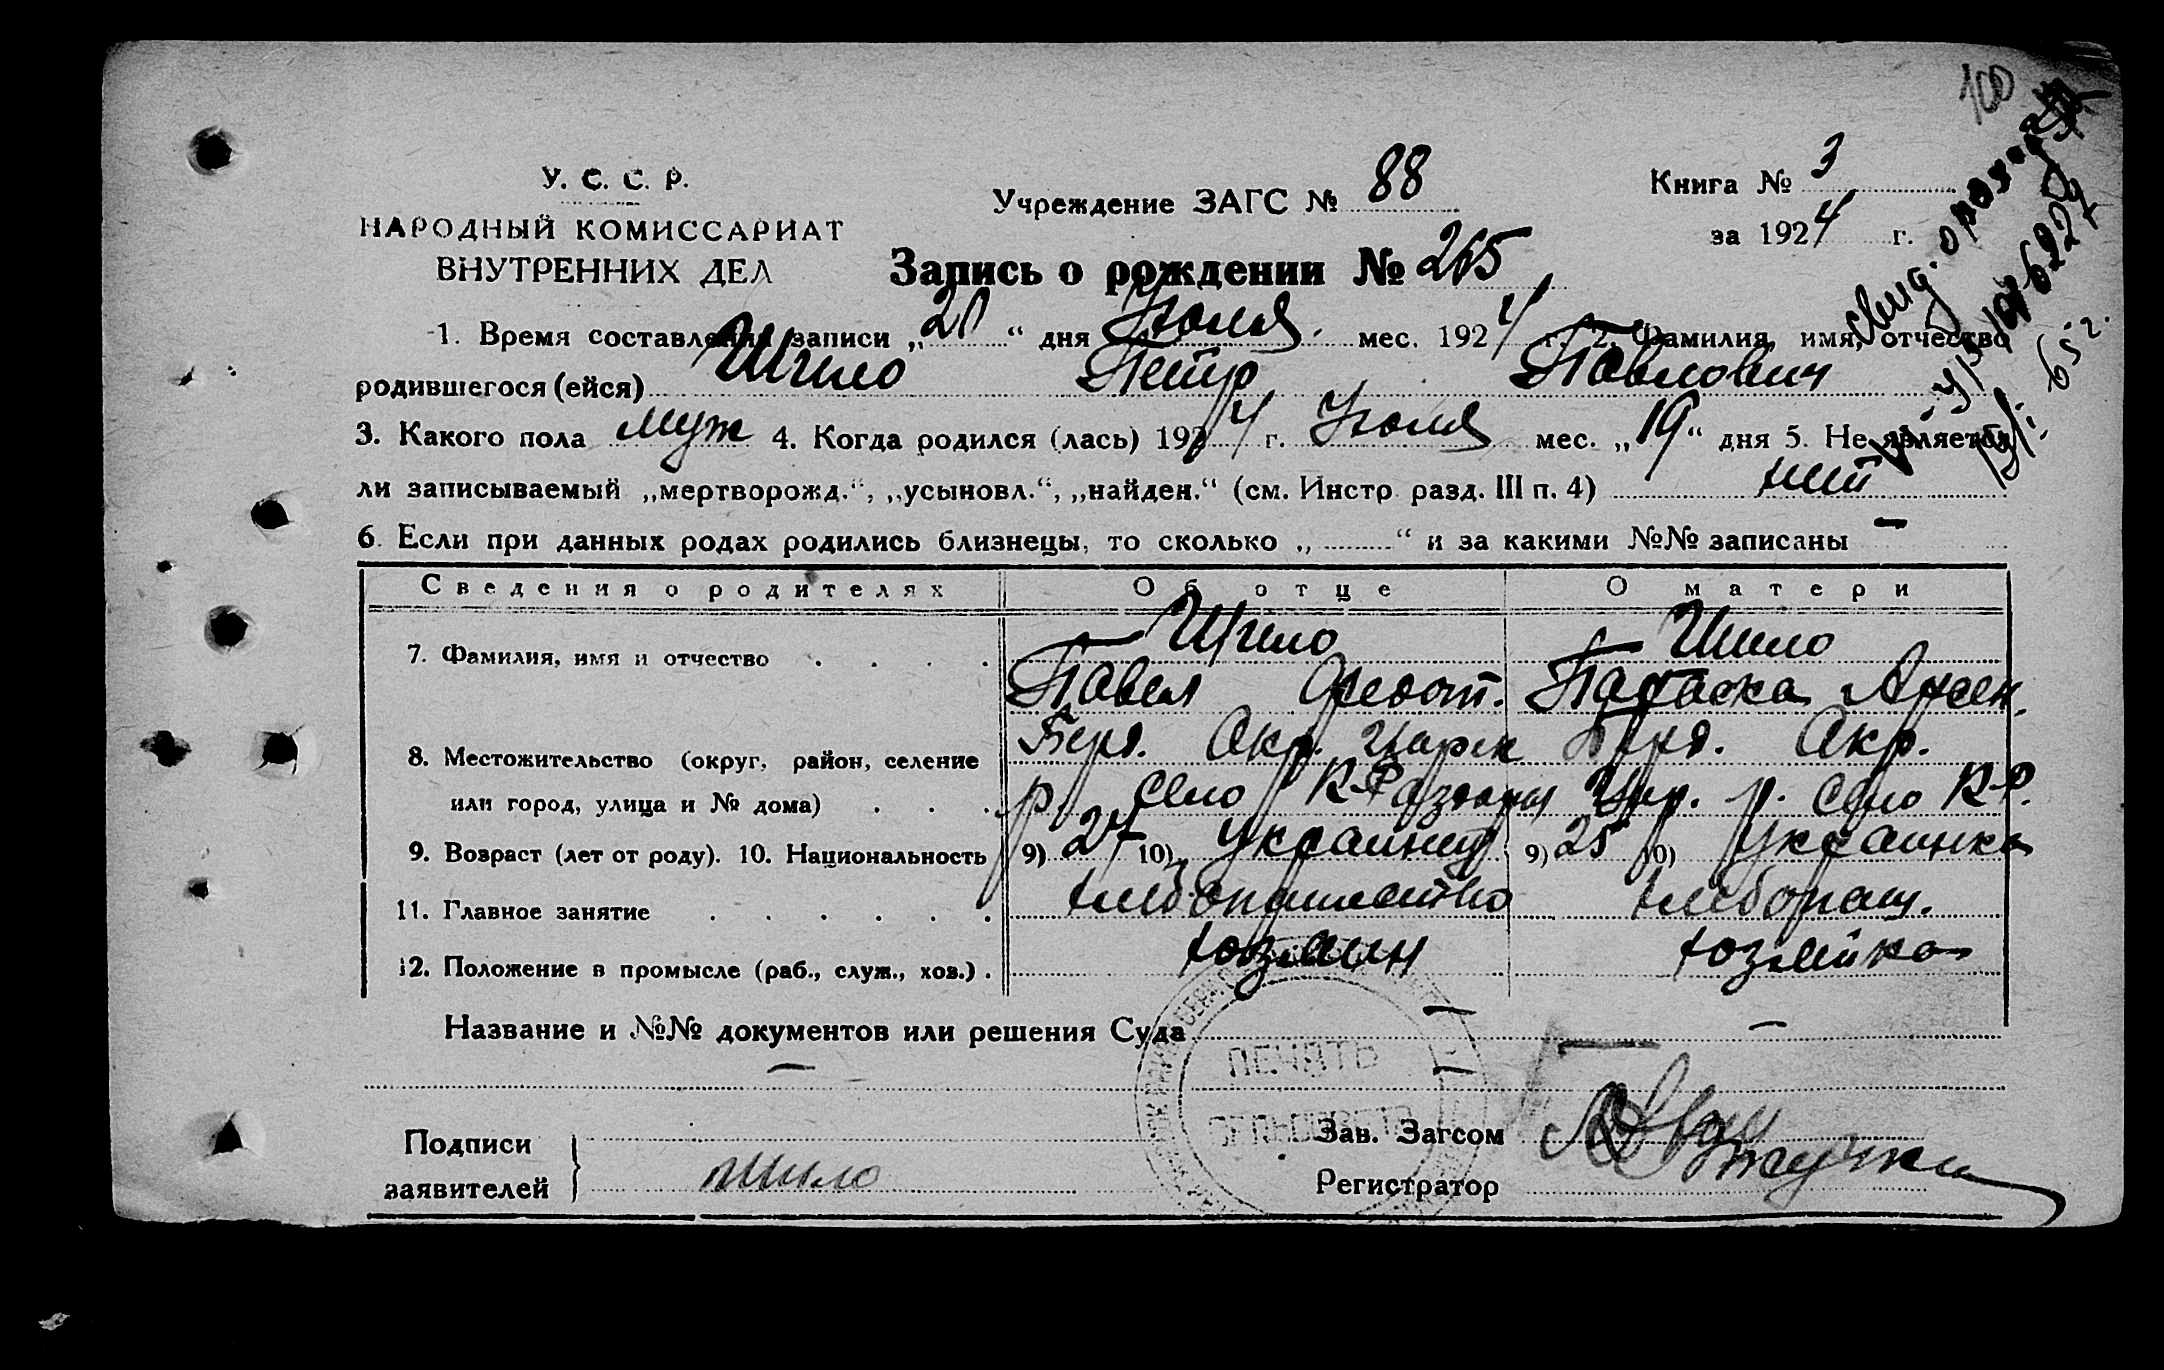 100
У. С. С. Р.
НАРОДНЫЙ КОМИССАРИАТ
ВНУТРЕННИХ ДЕЛ
Учреждение ЗАГС № 88
Книга № 3
за 1924 г.
Запись о рождении № 265
1. Время составления записи „20“ дня Июля мес. 1924 г. 2. Фамилия, имя, отчество
родившегося (ейся) Шило Петр Павлович
3. Какого пола муж 4. Когда родился (лась) 1924 г. Июля мес. „19“ дня 5. Не является
ли записываемый „мертворожд.“, „усыновл.“, „найден.“ (см. Инстр. разд. III п. 4) нет
6. Если при данных родах родились близнецы, то сколько „ “ и за какими №№ записаны —
Сведения о родителях Об отце О матери
7. Фамилия, имя и отчество Шило Шило
Павел Федот. Параска Арсен.
8. Местожительство (округ, район, селение Берд. Окр. Царек Берд. Окр.
или город, улица и № дома) р. село К-Раздоры Цар. р. село К-Р.
9. Возраст (лет от роду). 10. Национальность 9) 27 10) Украинец 9) 25 10) Украинка
11. Главное занятие хлебопашество хлебопаш.
12. Положение в промысле (раб., служ., хоз.) хозяин хозяйка
Название и №№ документов или решения Суда — —
— —
ПЕЧАТЬ
Подписи
заявителей Шило
Зав. Загсом
Регистратор